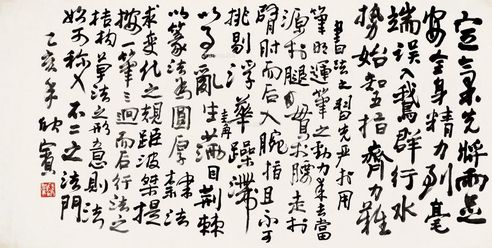 定氣先將兩足
安全身精力到毫
端誤入鵝群行水
勢始知五指齊力難
書法之習先嚴於用
筆明運筆之動力来去當
源於腿貫於腰走於
臂肘而后入腕指且不可
挑剔浮華躁滯
以至亂生滿目荆棘
以篆法為圓厚隸法
求變化之規距波桀提
按一筆三迴而后行法之
結構草法之形意則法
始可称入不二之法門
乙亥年